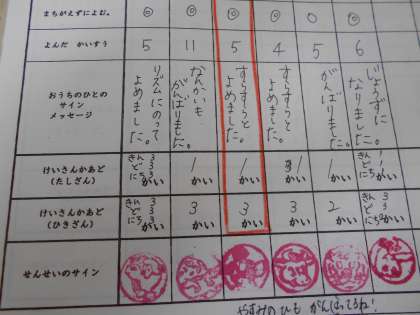 まちがえずによむ。 ◎ ◎ ◎ ◎ ○ ◎
よんだ かいすう 5 11 5 4 5 6
おうちのひとの
サイン
メッセージ
リズムにのって
よめました。
なんかいも
がんばりました。
すらすらと
よめました。
すらすらと
よめました。
がんばりました。
じょうずに
なりました。
けいさんかあど
(たしざん)
きん3
ど3
にち3かい
1かい
1かい
1かい
1かい
けいさんかあど
(ひきざん)
きん3
ど3
にち3かい
3かい
3かい
3かい
2かい
せんせいのサイン
やすみのひも がんばってるね!